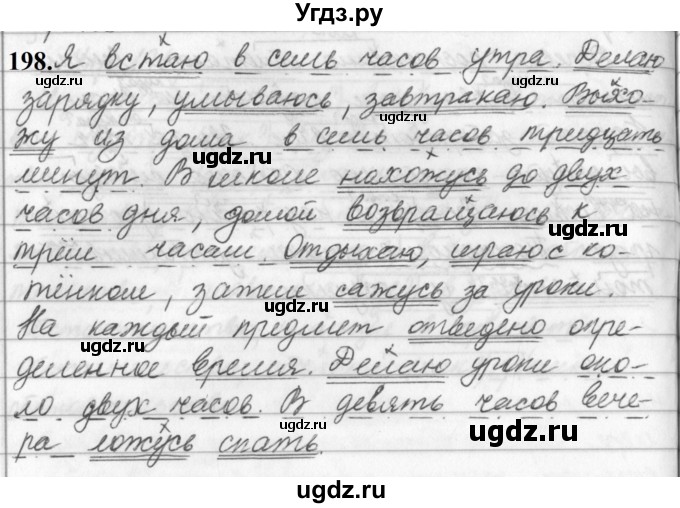 Угдз.ру
198. Я встаю в семь часов утра. Делаю
зарядку, умываюсь, завтракаю. Выхо-
жу из дома в семь часов тридцать
ugdz.ru ugdz.ru
минут. В школе нахожусь до двух
часов дня, домой возвращаюсь к
ugdz.ru
трём часам. Отдыхаю, играю с ко-
ugdz.ru
тёнком, затем сажусь за уроки.
На каждый предмет отведено опре-
ugdz.ru
деленное время. Делаю уроки око-
ло двух часов. В девять часов вече-
ugdz.ru
ра ложусь спать.
ugdz.ru
ugdz.ru